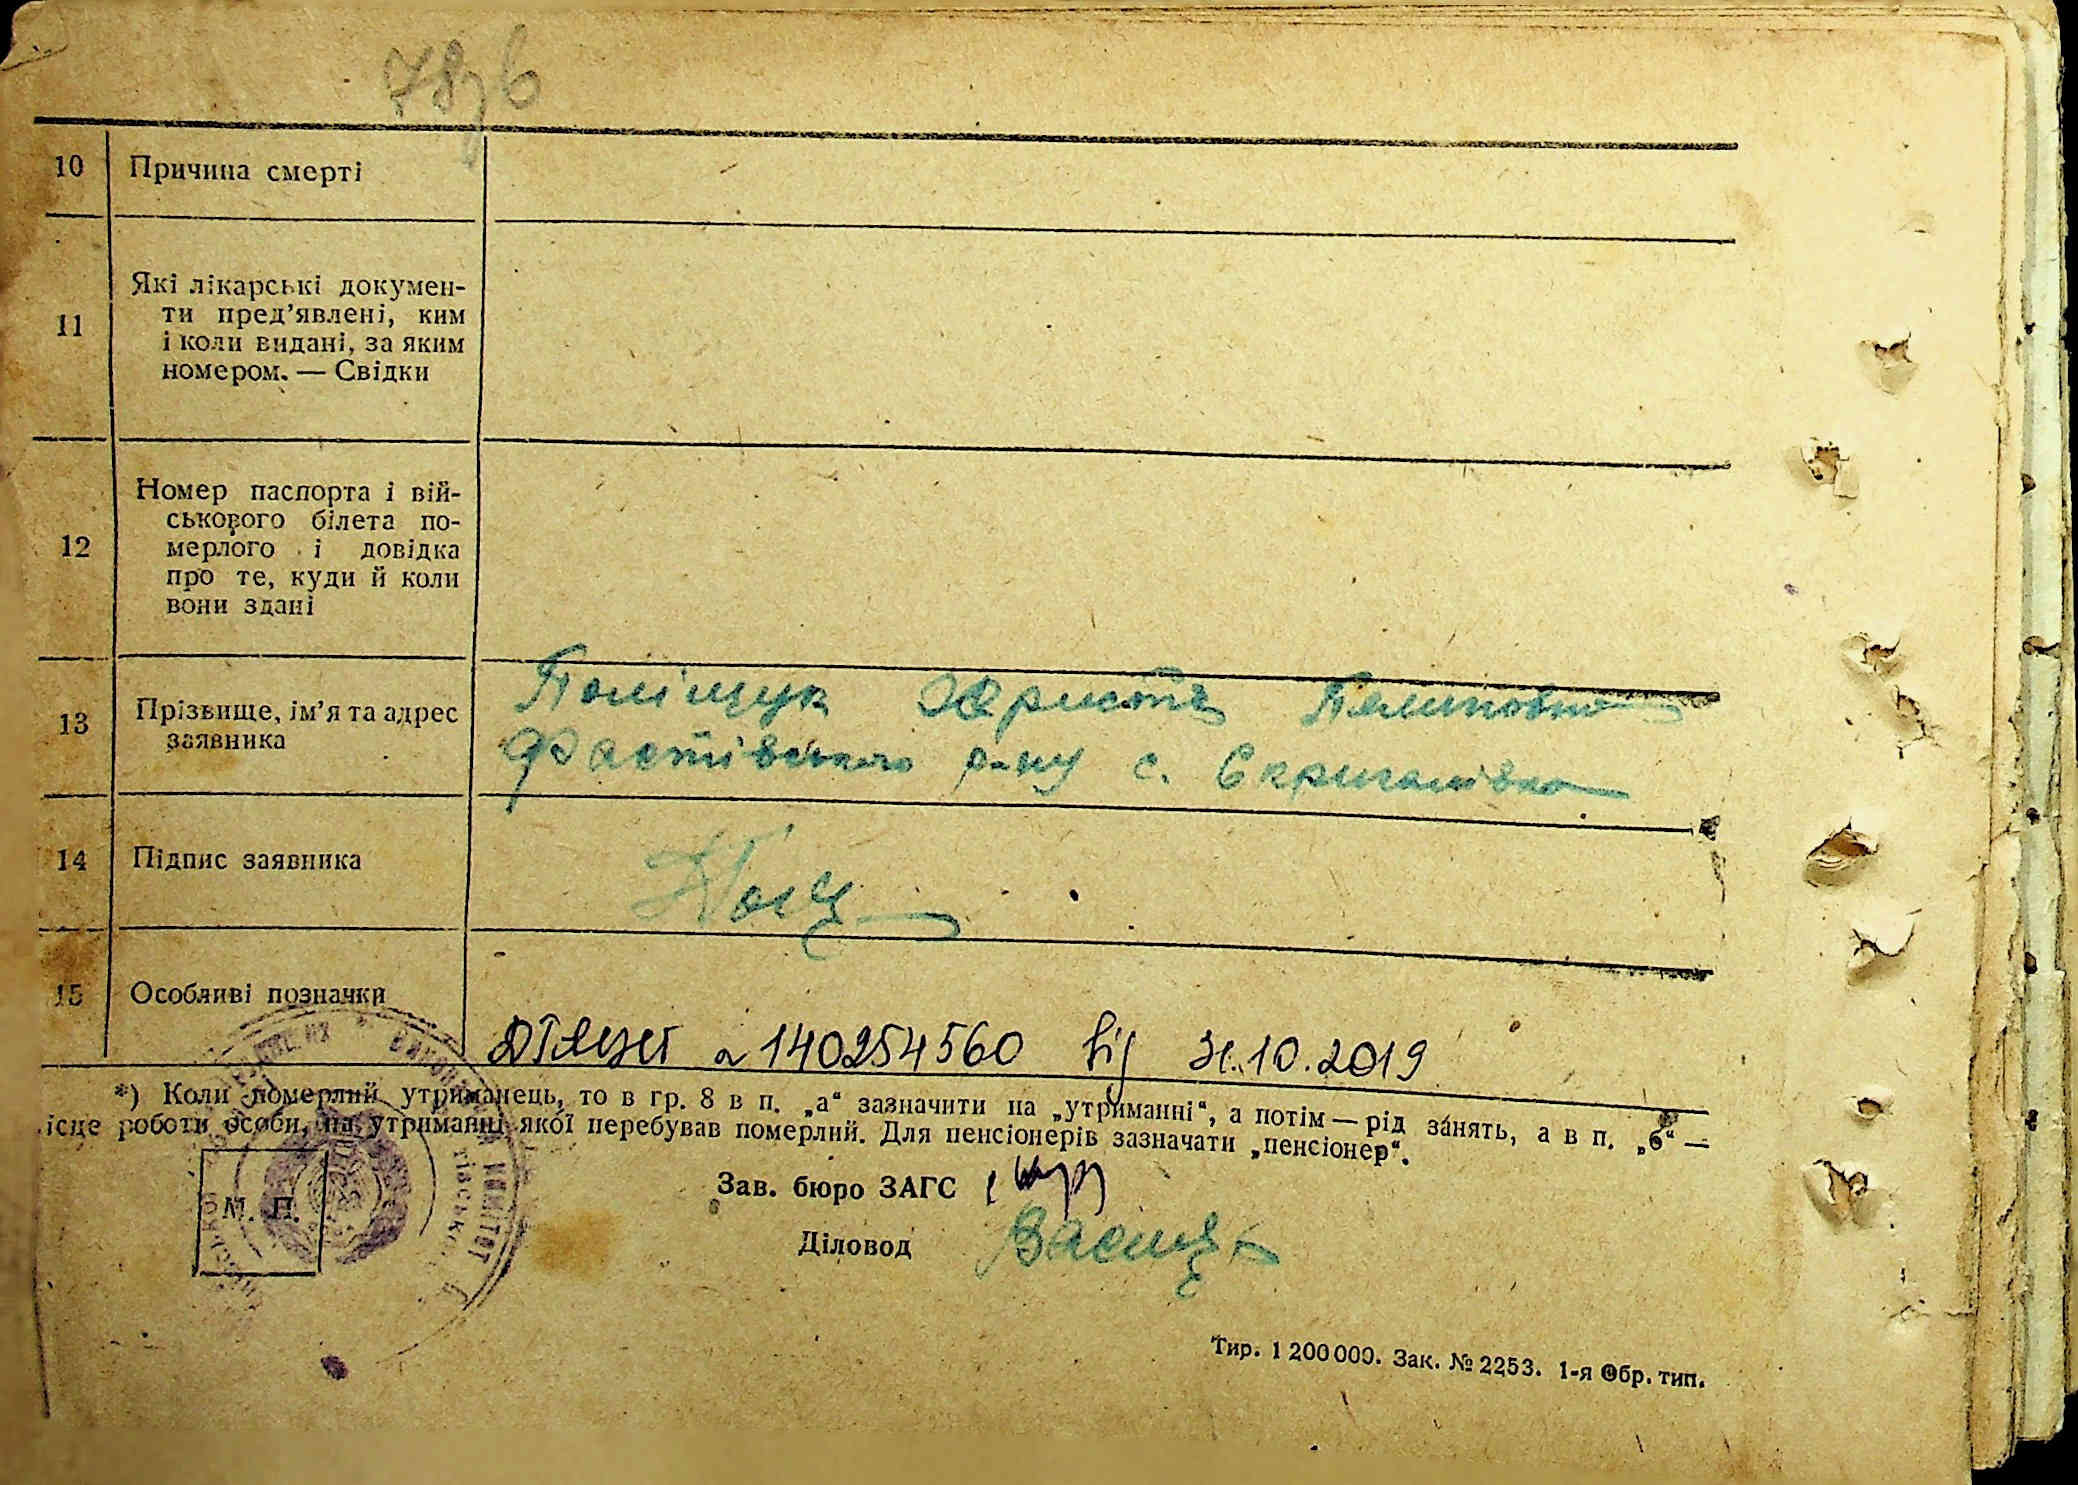 10 Причина смерті
11 Які лікарські докумен-
ти пред’явлені, ким
і коли видані, за яким
номером. — Свідки
12 Номер паспорта і вій-
ськового білета по-
мерлого і довідка
про те, куди й коли
вони здані
13 Прізвище, ім’я та адрес
заявника
Поліщук Христя Пилиповна
Фастівського р-ну с. Скригалівка
14 Підпис заявника
15 Особливі позначки
140254560 від 31.10.2019
*) Коли померлий утриманець, то в гр. 8 в п. „а“ зазначити на „утриманні“, а потім — рід занять, а в п. „б“ —
ісце роботи особи, на утриманні якої перебував померлий. Для пенсіонерів зазначати „пенсіонер“.
М. П.
Зав. бюро ЗАГС
Діловод
Тир. 1 200 000. Зак. № 2253. 1-я Обр. тип.